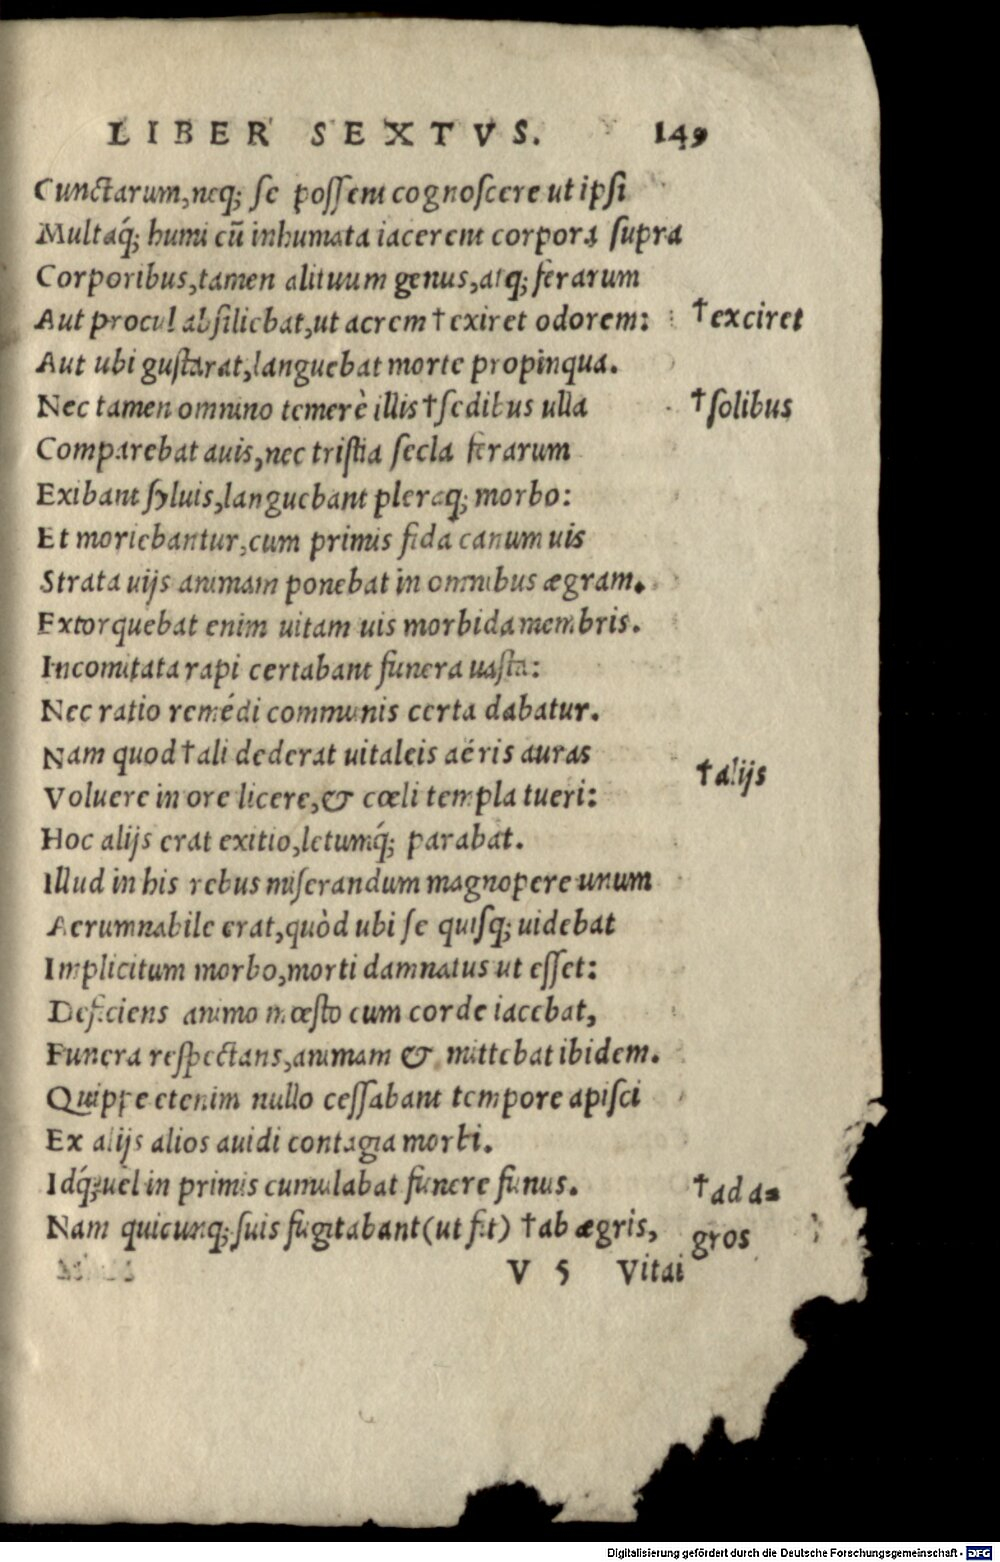 LIBER SEXTVS. 149
Cunctarum, neq; se possent cognoscere ut ipsi
Multaq́; humi cū inhumata iacerent corpora supra
Corporibus, tamen alituum genus, atq; ferarum
Aut procul absiliebat, ut acrem † exiret odorem: † exciret
Aut ubi gustarat, languebat morte propinqua.
Nec tamen omnino temerè illis † sedibus ulla † solibus
Comparebat auis, nec tristia secla ferarum
Exibant syluis, languebant pleraq; morbo:
Et moriebantur, cum primis fida canum uis
Strata uijs animam ponebat in omnibus ægram.
Extorquebat enim uitam uis morbida membris.
Incomitata rapi certabant funera uasta:
Nec ratio remédi communis certa dabatur.
Nam quod † ali dederat uitaleis aëris auras † alijs
Voluere in ore licere, & cœli templa tueri:
Hoc alijs erat exitio, letumq́; parabat.
Illud in his rebus miserandum magnopere unum
Aerumnabile erat, quòd ubi se quisq; uidebat
Implicitum morbo, morti damnatus ut esset:
Deficiens animo mœsto cum corde iacebat,
Funera respectans, animam & mittebat ibidem.
Quippe etenim nullo cessabant tempore apisci
Ex alijs alios auidi contagia morbi.
Idq́; uel in primis cumulabat funere funus. † ad a=
Nam quicunq; suis fugitabant (ut fit) † ab ægris, gros
V 5 Vitai
Digitalisierung gefördert durch die Deutsche Forschungsgemeinschaft - DFG